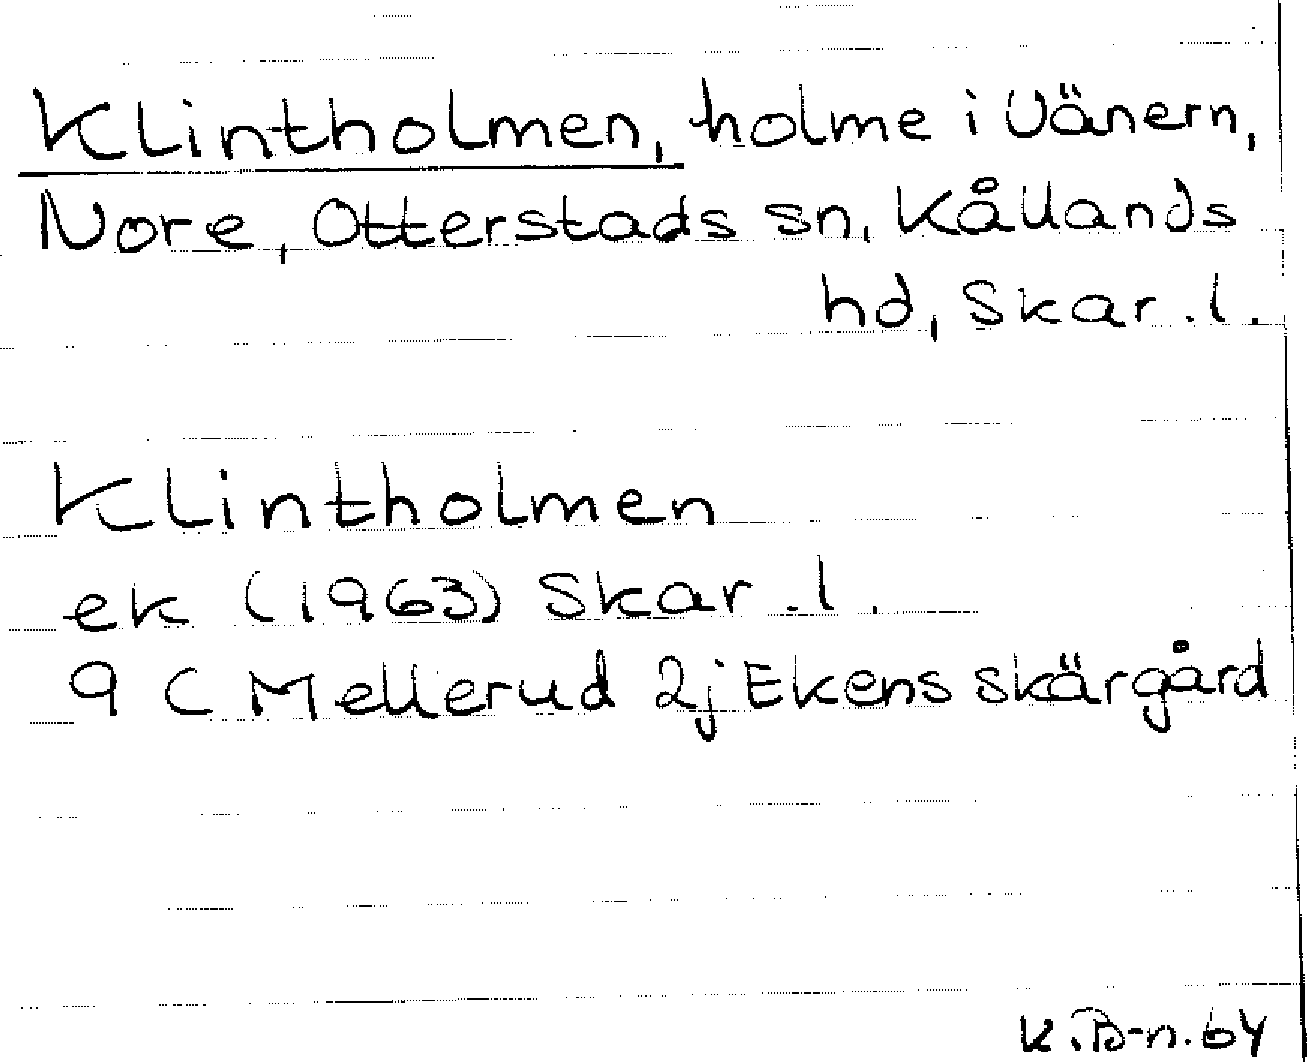 Klintholmen, holme i Vänern,
Nore, Otterstads sn, Kållands
hd, Skar. l.
Klintholmen
ek (1963) Skar. l.
9 C Mellerud 2j Ekens skärgård
K.B-n. 64